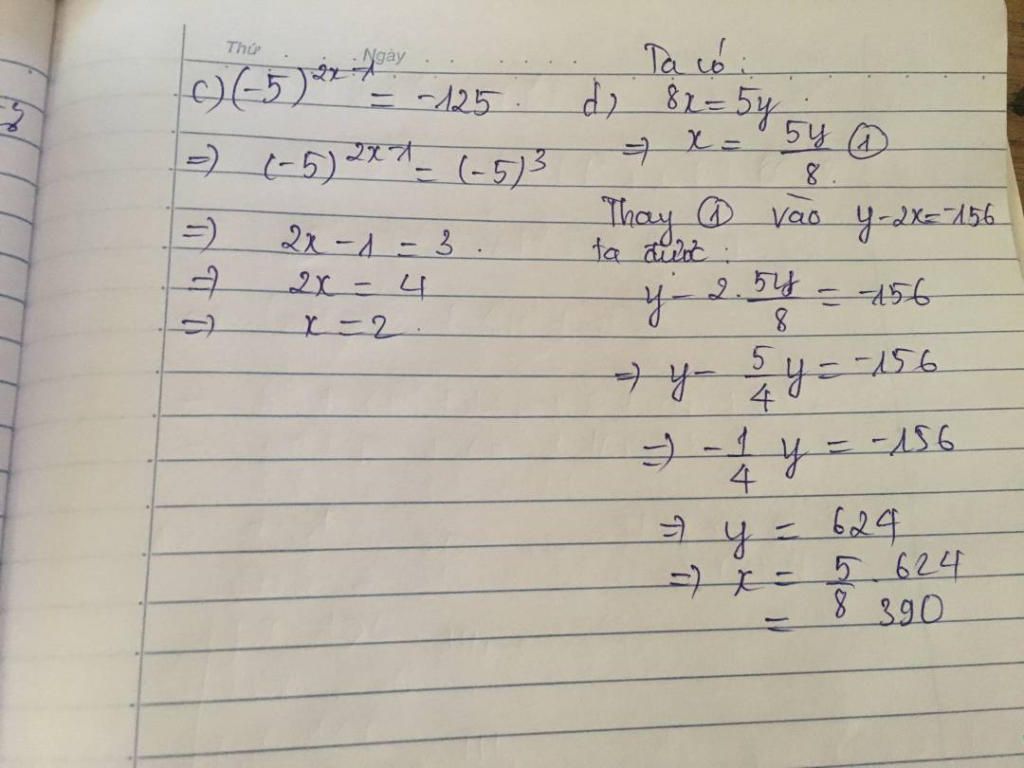 Thứ Ngày
c) (-5)^{2x-1} = -125.
=> (-5)^{2x-1} = (-5)^3
=> 2x - 1 = 3.
=> 2x = 4
=> x = 2.
Ta có:
d) 8x = 5y.
=> x = 5y/8. ①
Thay ① vào y - 2x = -156
ta được:
y - 2. 5y/8 = -156
=> y - 5/4 y = -156
=> - 1/4 y = -156
=> y = 624
=> x = 5/8 . 624
= 390